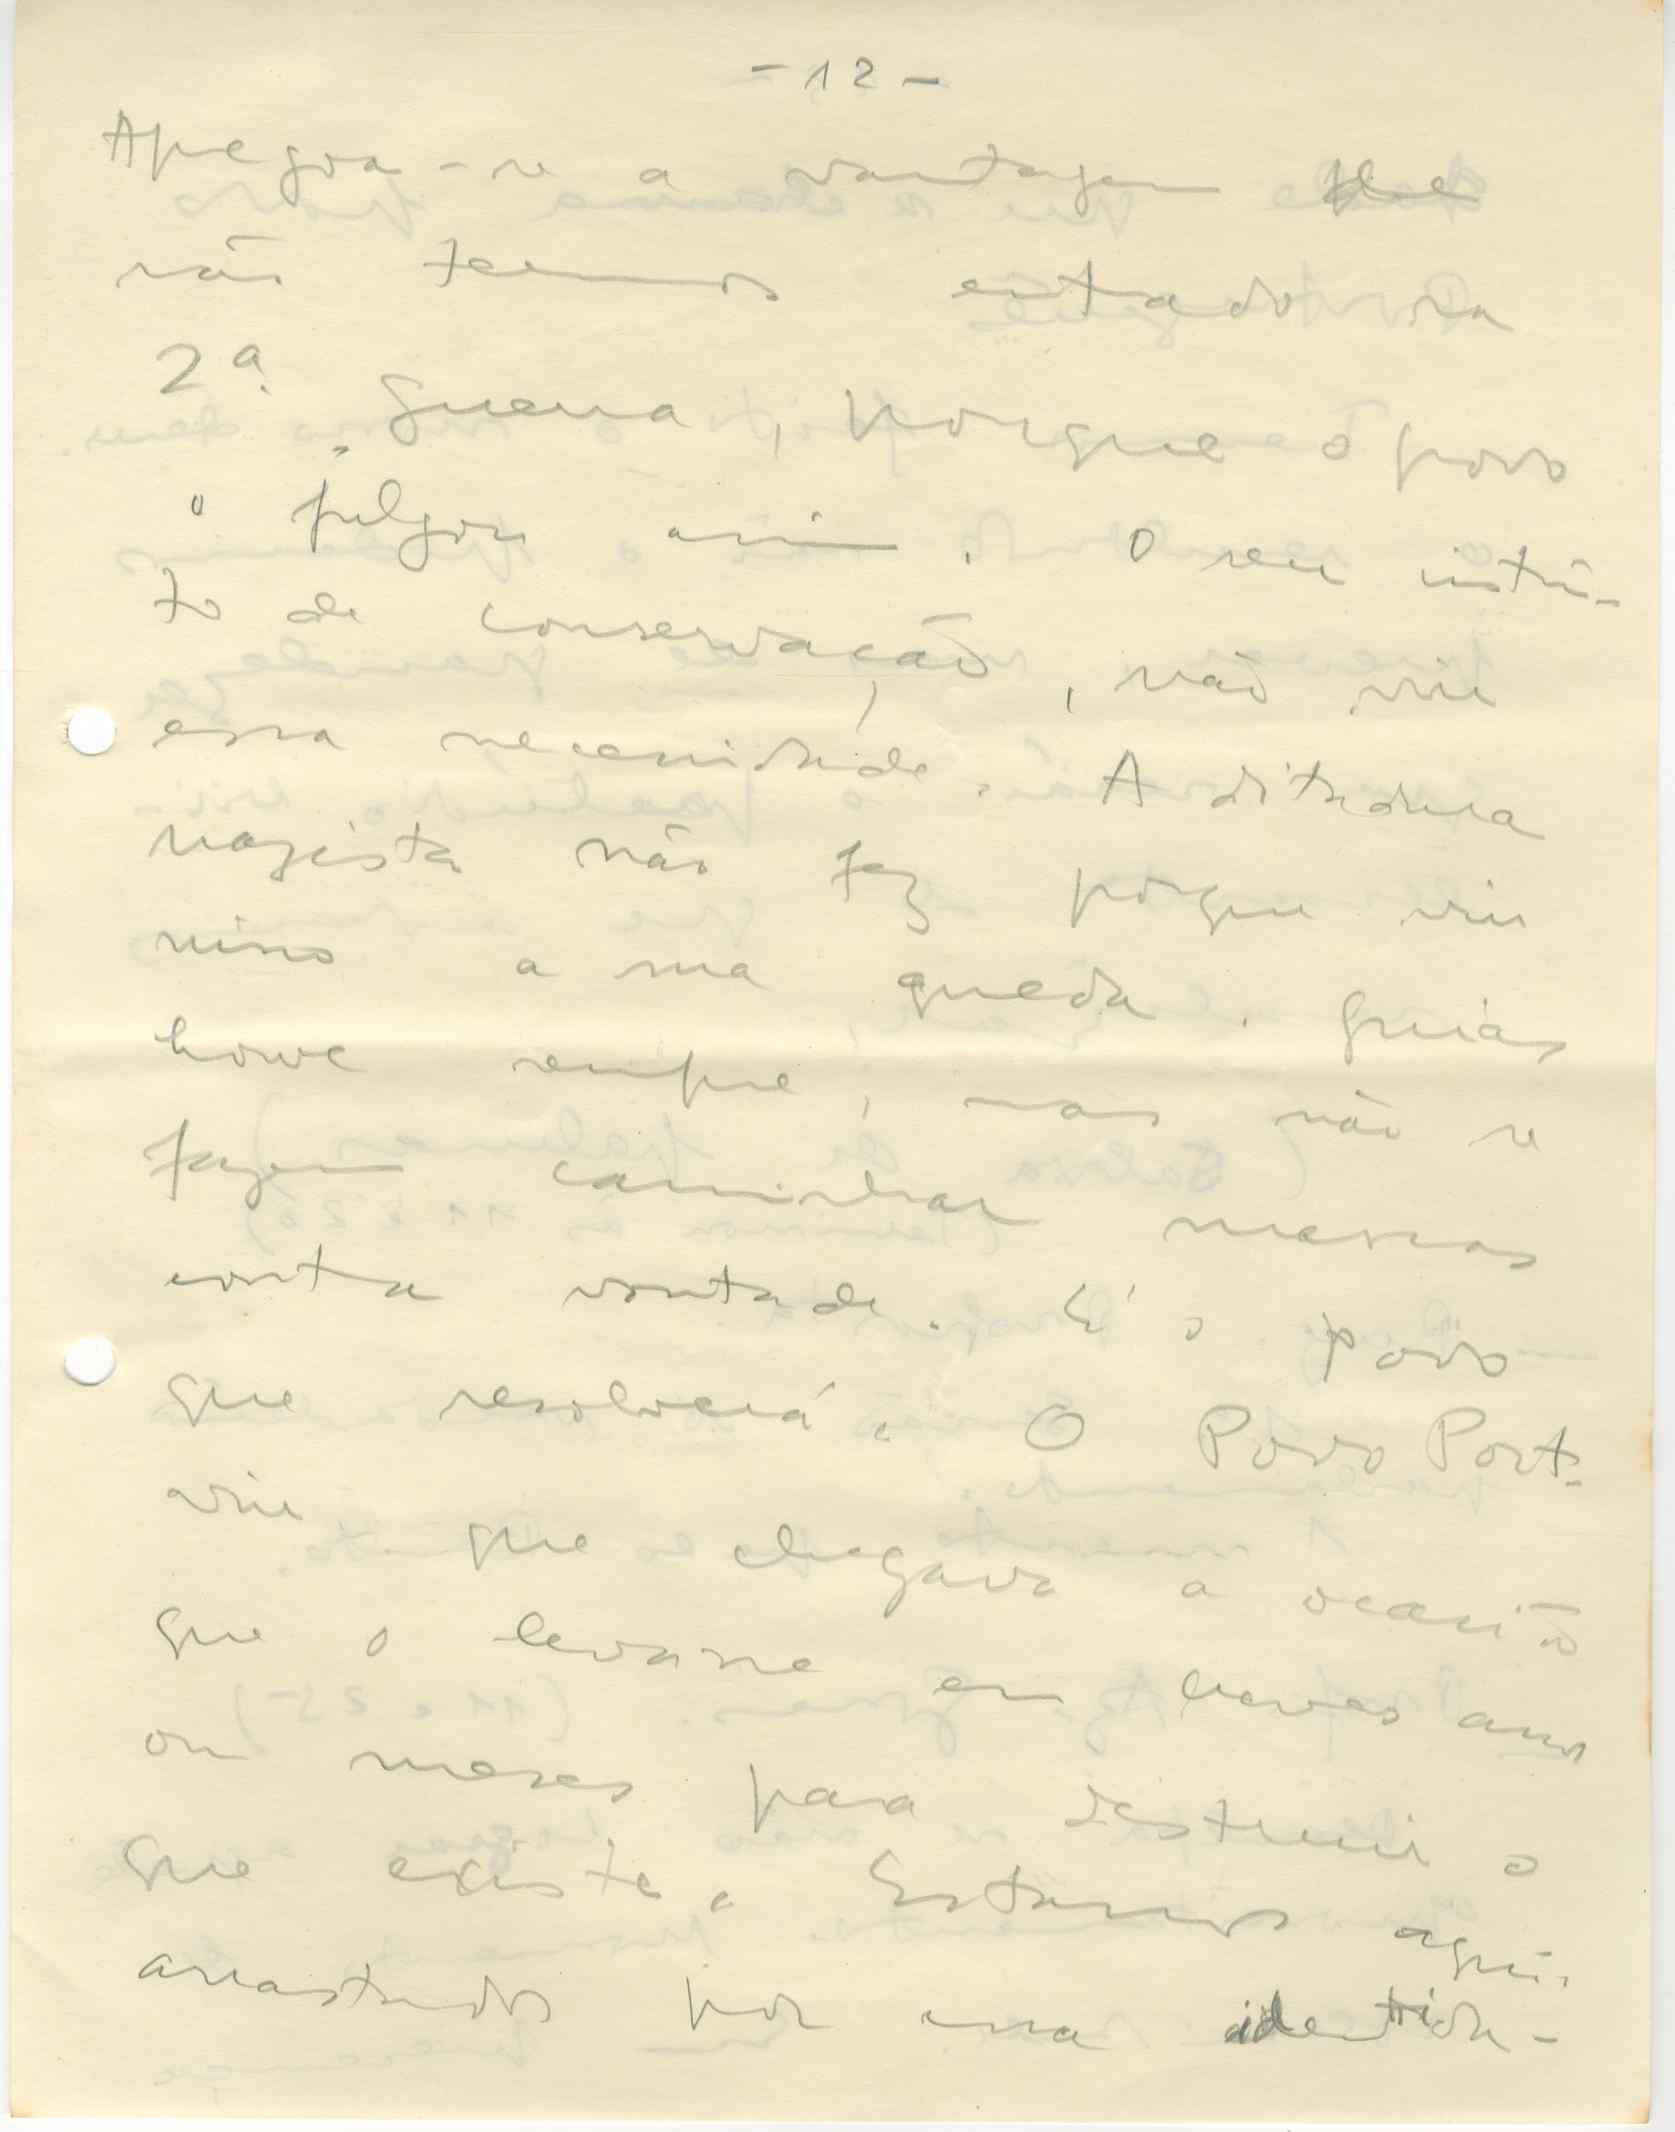 - 12 -
Apegoa-se a vantagem de
não termos entado na
2ª Guerra, porque o povo
o julgou assim. O seu instin-
to de conservação, não viu
essa necessidade. A ditadura
nazista não fez porque viu
nisso a sua queda. Guias
houve sempre, mas não se
fazem caminhar massas
contra vontade. É o povo
que resolverá. O Povo Port.
viu que chegava a ocasião
que o levasse em breves anos
ou meses para destruir o
que existe. Estamos aqui
arrastados por essa identida-